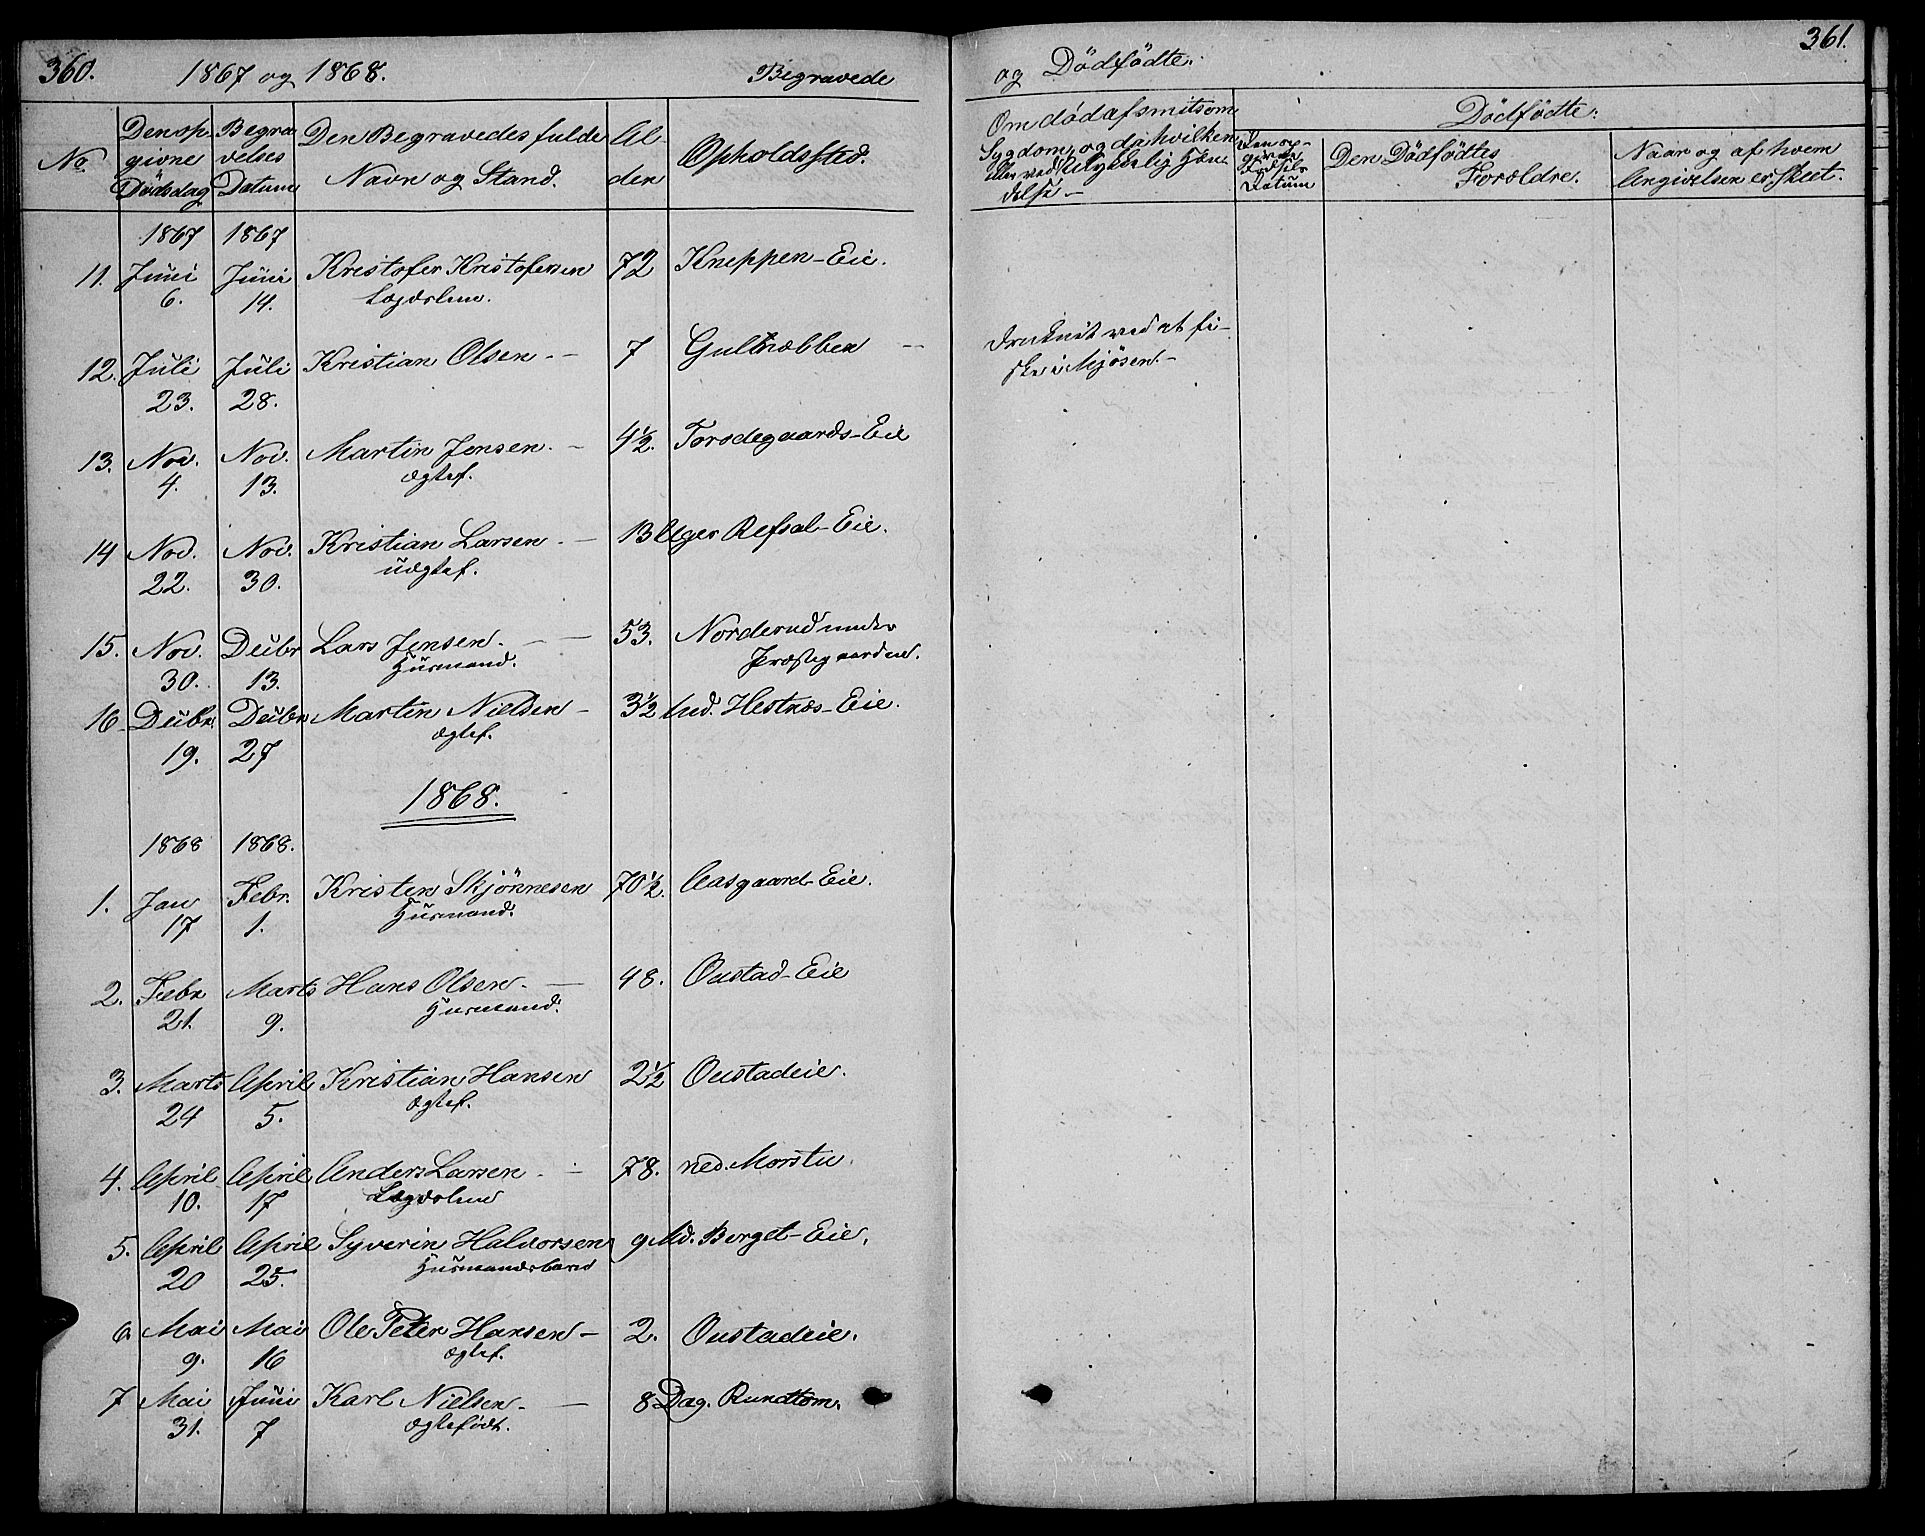 360. 1867 og 1868. Begravede
No. Den op- Begra- Den Begravedes fulde Al- Opholdssted.
givne velses Navn og Stand. der
Dødsdag Datum
1867 1867
11. Juni Juni Kristofer Kristofersen 72 Kneppen-Eie.
6. 14. Lægdslem.
12. Juli Juli Kristian Olsen - - 7 Gulnæbben -
23. 28.
13. Nov. Nov. Martin Jensen. - 4½. Torsdegaards-Eie
4. 13. ægtef.
14 Nov. Nov. Kristian Larsen. - 13 Uger Refsal-Eie.
22. 30. uægtef.
15. Nov. Decbr Lars Jensen. - - 53. Norderud under
30. 13. Husmand. Præstegaarden.
16 Decbr. Decbr Martin Nielsen - 3½ Md. Hestnæs-Eie.
19. 27 ægtef.
1868.
1868 1868.
1. Jan Febr. Kristen Skjönnesen 70½. Aasgaard-Eie.
17 1. Husmand.
2. Febr Marts Hans Olsen. - 48. Oustad-Eie
21. 9. Husmand.
3. Marts April Kristian Hansen 2½ Oustadeie.
24 5. ægtef.
4. April April Anders Larsen. - 78. ned. Morstu.
10. 17 Lægdslem
5. April April Syverin Halvorsen 9 Md. Berget-Eie.
20 25. Husmandsbarn
6 Mai Mai Ole Peter Hansen - 2. Oustadeie.
9. 16 ægtef.
7 Mai Juni Karl Nielsen. - 8 Dag. Rundtom.
31. 7 ægtefödt.
og Dödfödte. 361.
Om död af smitsom Dödfödte:
Sygdom, og da hvilken Den op- Den Dödfödtes Naar og af hvem
eller ved Ulykkelig Hæn- givne Forældre. Angivelsen er skeet.
delse - Födsels
Datum
druknet ved at fi-
ske i Mjøsen. -